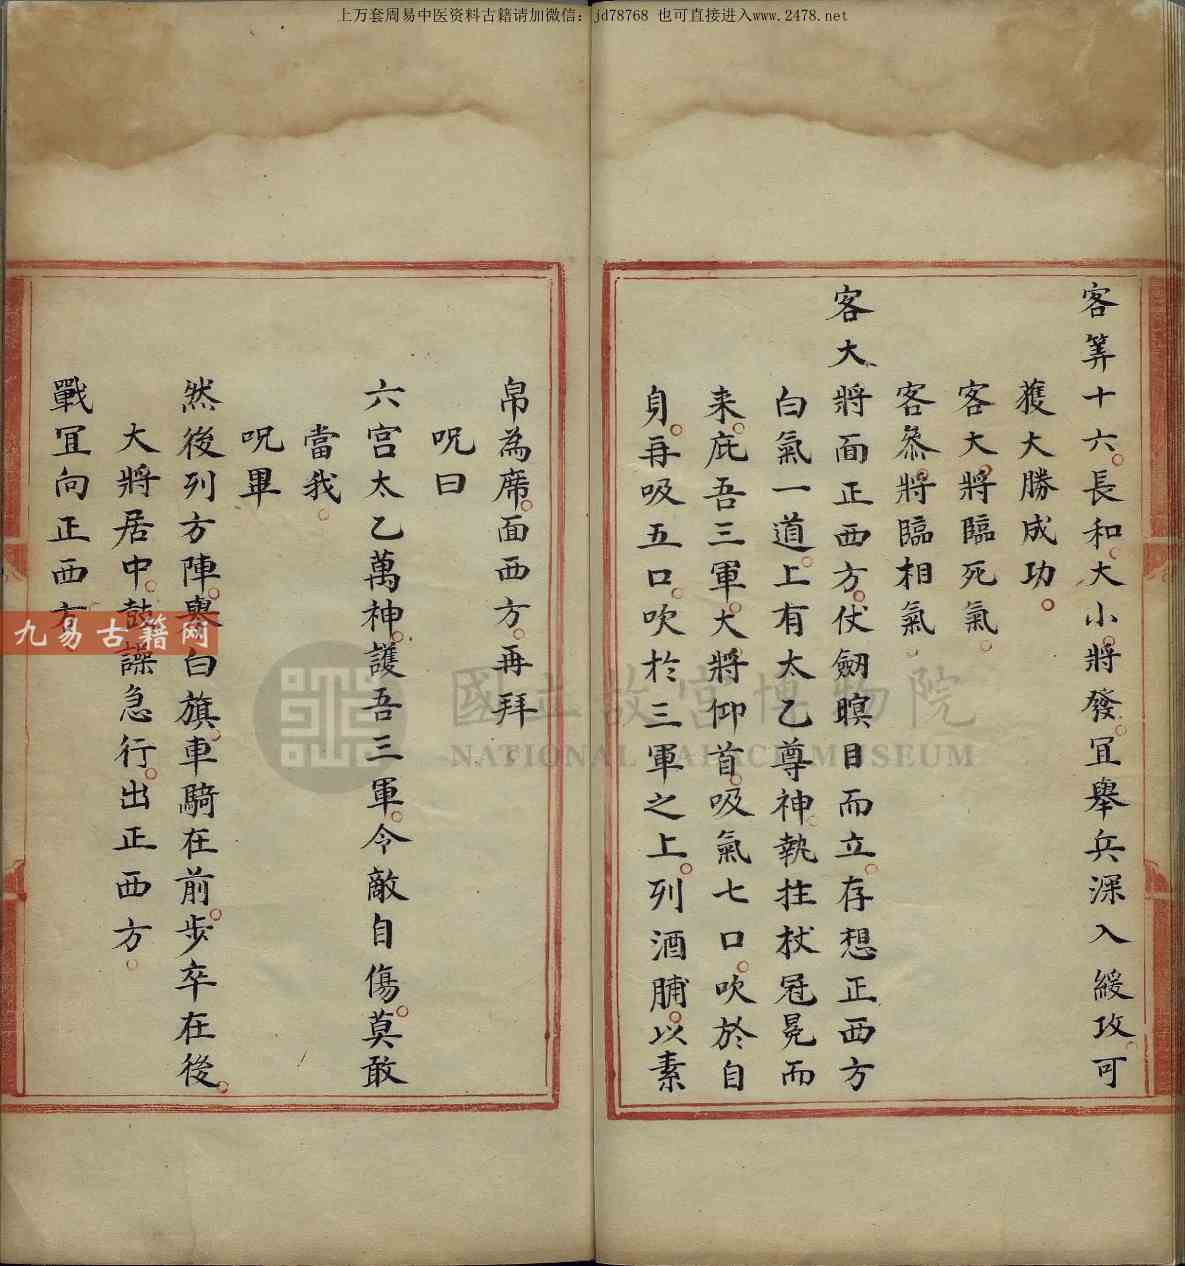 上万套周易中医资料古籍请加微信：jd78768 也可直接进入www.2478.net
客筭十六。長和。大小將發。冝舉兵深入緩攻。可
獲大勝成功。
客大將臨死氣。
客叅將臨相氣。
客大將面正西方。仗劒瞑目而立。存想正西方
白氣一道。上有太乙尊神執拄杖冠冕而
来。庇吾三軍。大將仰首。吸氣七口。吹於自
身。再吸五口。吹於三軍之上。列酒脯。以素
帛為席。面西方。再拜。
呪曰
六宫太乙萬神。護吾三軍。令敵自傷。莫敢
當我。
呪畢
然後列方陣。輿白旗。車騎在前。步卒在後。
大將居中。鼓譟急行。出正西方。
戰冝向正西方。
九易古籍网
國立故宮博物院
NATIONAL PALACE MUSEUM